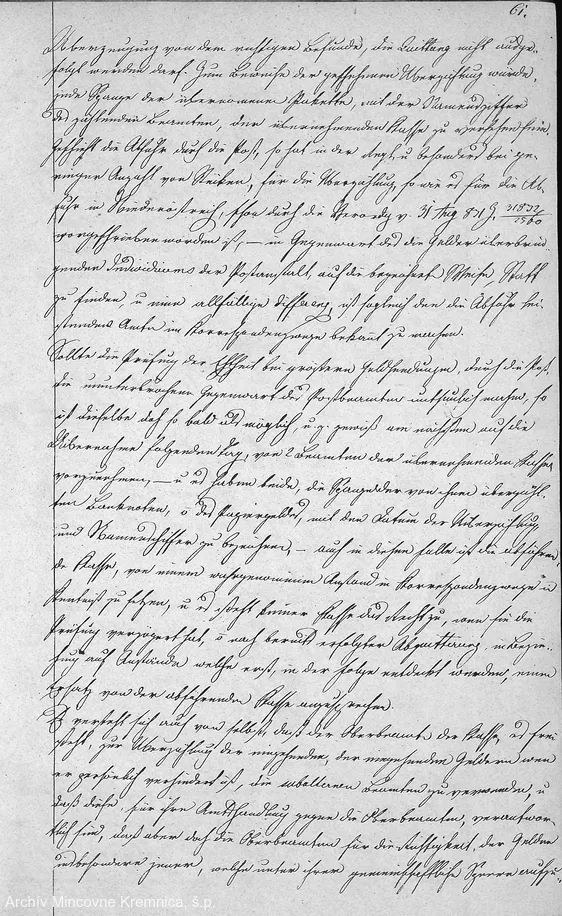 61.
Ueberzeugung von dem richtigen Befunde, die Quittung nicht ausge-
folgt werden darf. Zum Beweise der geschehenen Überzählung wurde,
jede Spange der übernommenen Pakette, mit der Namensziffer
des zählenden Beamten, der übernehmenden Kasse zu versehen sein.
Geschieht die Abfuhr durch die Post, so hat in der Regel, u besonders bei ge-
ringer Anzahl von Stücken, für die Überzählung, so wie es für die Ab-
fuhr in Niederösterreich, schon durch die Verordg v. 31 Aug 831 Z. 31832/1560
vorgeschrieben worden ist, – in Gegenwart des die Gelder überbrin-
genden Individuums der Postanstalt, auf die besagte Weise, Statt
zu finden, u eine allfällige Differenz, ist sogleich dem die Abfuhr lei-
stenden Amte im Korrespondenzwege bekannt zu machen.
Sollte die Prüfung der Echtheit bei größern Geldsendungen, durch die Post,
die ununterbrochene Gegenwart des Postbeamten unthunlich machen, so
ist dieselbe doch so bald als möglich, u z. gewiß am nächsten auf die
Übernahme folgenden Tag, von 2 Beamten der übernehmenden Kasse
vorzunehmen, – u es haben beide, die Spangen der von ihnen überzähl-
ten Banknoten, o des Papiergeldes, mit dem Datum der Überzählung
und Namensziffer zu bezeichnen, – auch in diesem Falle ist die abführen-
de Kasse, von einem wahrgenommenen Anstand im Korrespondenzwege in
Kenntniß zu setzen, u es steht keiner Kasse das Recht zu, wenn sie die
Prüfung verzögert hat, o nach bereits erfolgter Abquittung, in Bezie-
hung auf Anstände welche erst, in der Folge entdeckt werden, einen
Ersatz von der abführenden Kasse anzusprechen.
Es versteht sich auch von selbst, daß der Oberbeamte der Kasse, es frei
steht, zur Überzählung der eingehenden, der weggehenden Geldern wenn
er persönlich verhindert ist, die subalternen Beamten zu verwenden, u
daß diese für ihre Amtshandlung gegen die Oberbeamten, verantwor-
tlich sind, daß aber doch die Oberbeamten für die Richtigkeit der Gelder
insbesondere jener, welche unter ihrer gemeinschaftliche Sperre aufzu-
Archív Mincovne Kremnica, š.p.